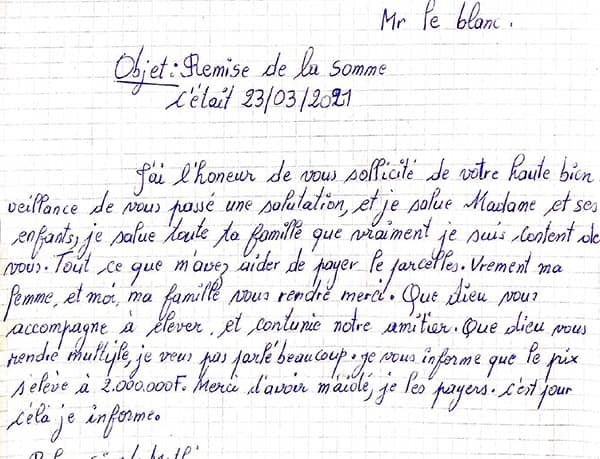 Mr le blanc.
Objet: Remise de la somme
c'était 23/03/2021
J'ai l'honeur de vous sollicité de votre haute bien
veillance de vous passé une salutation, et je salue Madame et ses
enfants, je salue toute ta famille que vraiment je suis content de
vous. Tout ce que m'avez aider de payer le parcelles. Vrement ma
femme, et moi, ma famille vous rendre merci. Que dieu vous
accompagne à élever, et contunie notre amitier. Que dieu vous
rendre multiple, je veus pas parlé beaucoup. je vous informe que le prix
s'élève à 2.000.000F. Merci d'avoir m'aidé, je les payers. c'est pour
célà je informe.